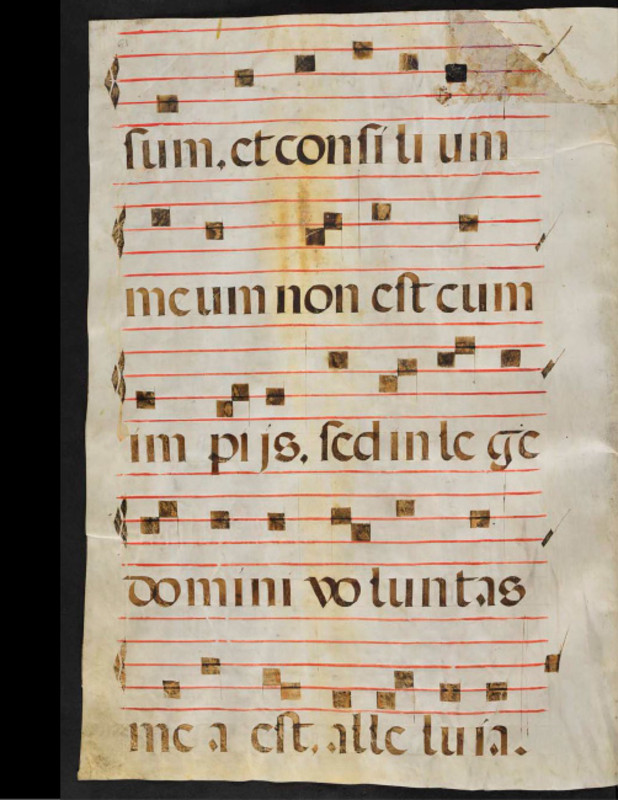 sum, et consi li um
me um non est cum
im pi js, sed in le ge
domini vo luntas
me a est, alle lu ia.